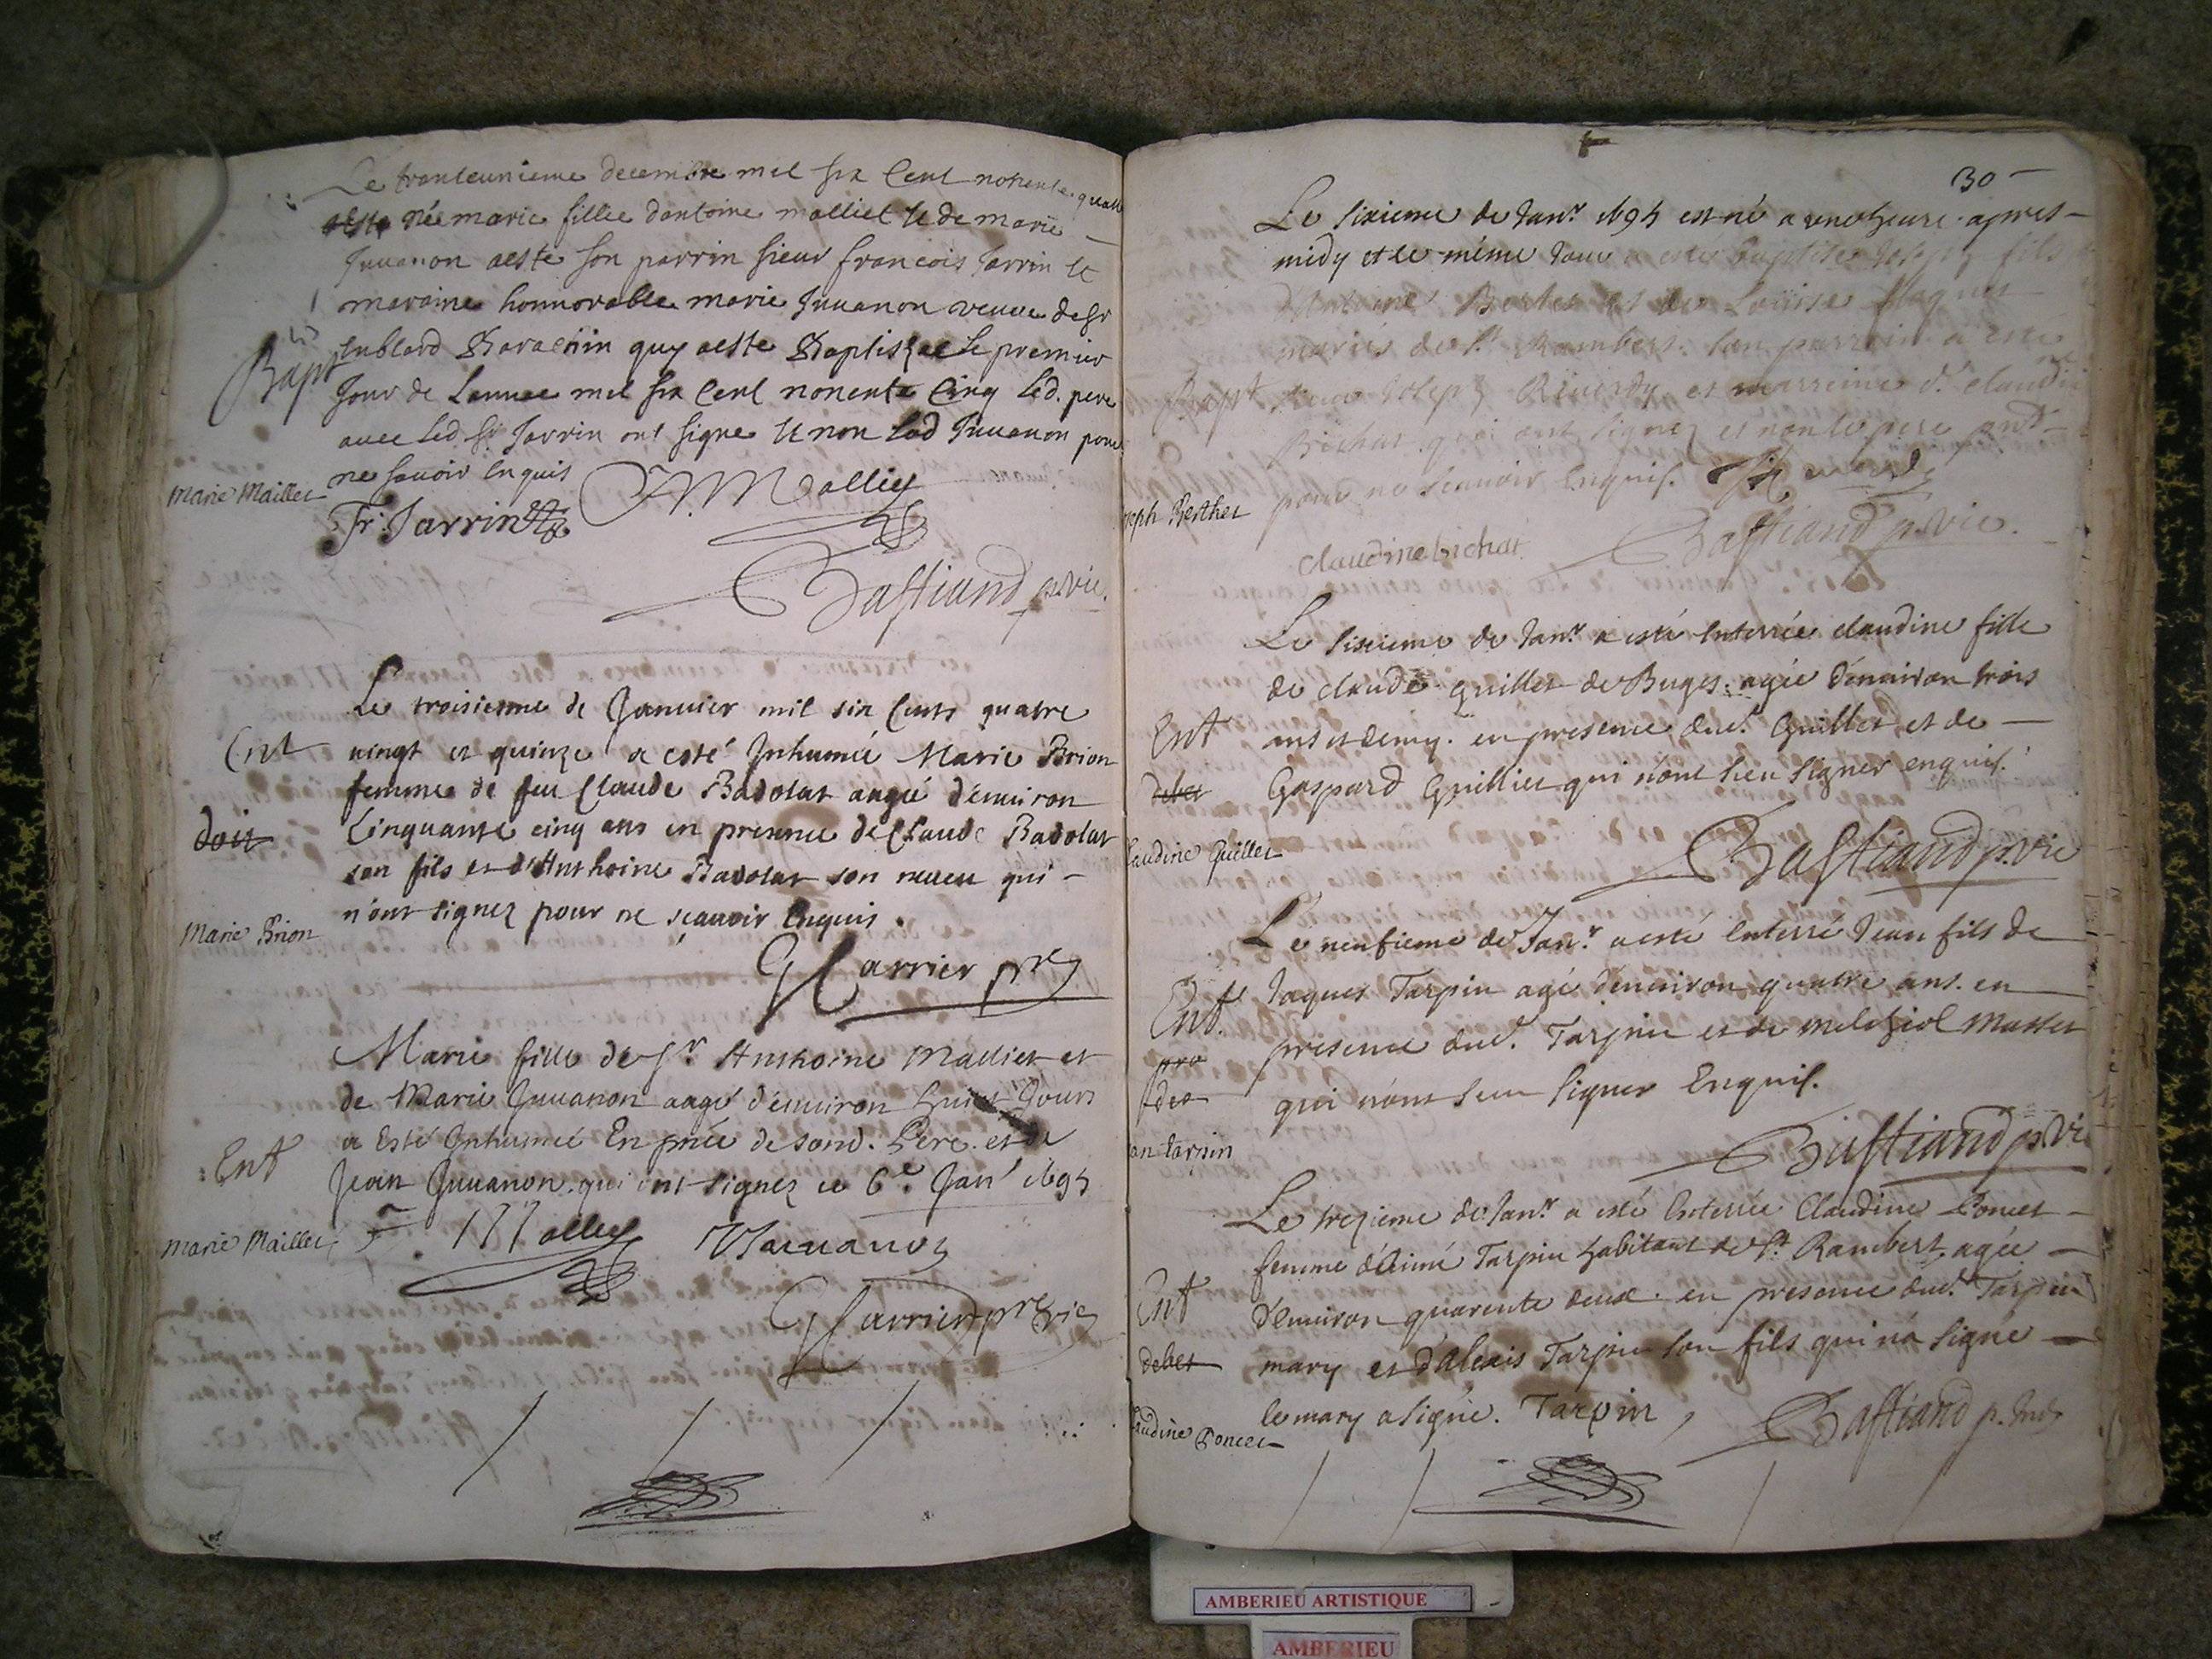 Le tranteunieme decembre mil six Cent nonente quatre
aeste née marie fillie dantoine malliet Et de marie
Juuanon aeste son parrin sieur francois Jarrin Et
maraine honnorable marie Juuanon veuue de sr
quy aeste Baptiszae Le premier
Bapt
Jour de Lannee mil six Cent nonente Cinq Led. pere
auec Led. sr Jarrin ont signe Et non Lad Juuanon pour
ne sauoir Enquis
Marie Maillet
Fr. Jarrin
A. Molliey
Bastiand p. vic.
Le troisienne de Januier mil six Cents quatre
Ent
uingt et quinze a esté Inhumée Marie Brion
femme de feu Claude Badolat augé d'enuiron
doit
Cinquante cinq ans en presence de Claude Badolat
son fils et d'Anthoine Badolat son neueu qui
n'ont signez pour ne sçauoir Enquis.
Marie Brion
G Carrier pre
Marie fille de sr Anthoine Malliet et
de Marie Juuanon aagé d'enuiron huict Jours
a Esté Inhumeé En pnce de sond. Pere et de
Ent
Jean Juuanon qui ont signez ce 6e Janr 1695
Marie Maillet
Molliey
J Juuanon
G Carrier pre vic
30
Le sixieme de Janr 1695 est né a une heure apres
midy et le méme Jour a esté baptisé Joseph fils
d'Antoine Berthet et de Loüise
mariés de St Rambert. son parrain a esté
Bapt
sieur Joseph Riuerdy et marreine de Claudine
Bichat qui ont signez et non le pere
pour ne scauoir enquis.
Joseph Berthet
claudine bichat
Bastiand p. vic.
Le sixieme de Janr a esté Enterrée claudine fille
de claude guillet de Buges. agée d'enuiron trois
Ent
ans et demy. en presence dud. Guillet et de
debet
Gaspard Guilliet qui n'ont sceu signer enquis.
Claudine Guillet
Bastiand p. vic
Le neufieme de Janr a esté Enterré Jean fils de
Ent.
Jaques Tarpin agé d'enuiron quatre ans. en
pro
presence dud. Tarpin et de melchiol Mattet
deo
qui n'ont sceu signer Enquis.
Jean tarpin
Bastiand p. vic
Le trezieme de Janr a esté Enterrée Claudine Poncet
femme d'Aimé Tarpin habitant de St Rambert. agée
Ent
d'enuiron quarente deux. en presence dud. Tarpin
debet
mary et d'Alexis Tarpin son fils qui na signé
le mary a signé. Tarpin
Claudine Poncet
Bastiand p.
AMBERIEU ARTISTIQUE
AMBERIEU